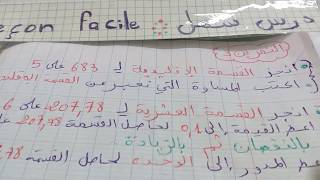 eçon facile : درس سهل
التمرين 3
أنجز القسمة الإقليدية ل 683 على 5
اكتب المساواة التي تعبر عن القسمة
أنجز القسمة العشرية ل 207,78 على 6
اعط القيمة إلى 0,1 لحاصل القسمة 207,78 على
بالنقصان ثم بالزيادة
اعط المدور إلى الوحدة لحاصل القسمة 78